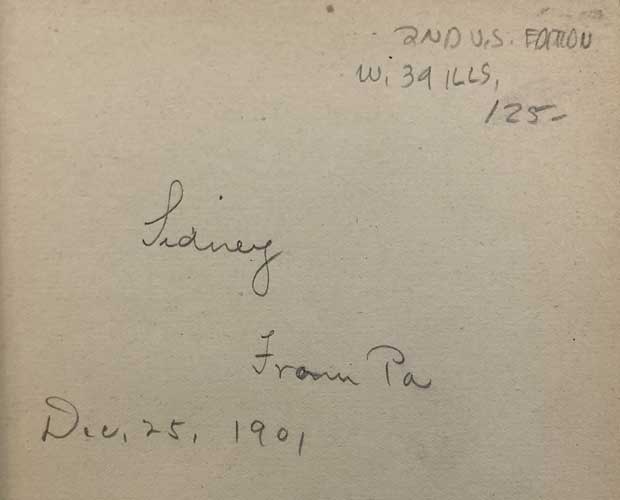 2ND U.S. EDITION
W. 39 ILLS,
125-
Sidney
From Pa
Dec. 25, 1901